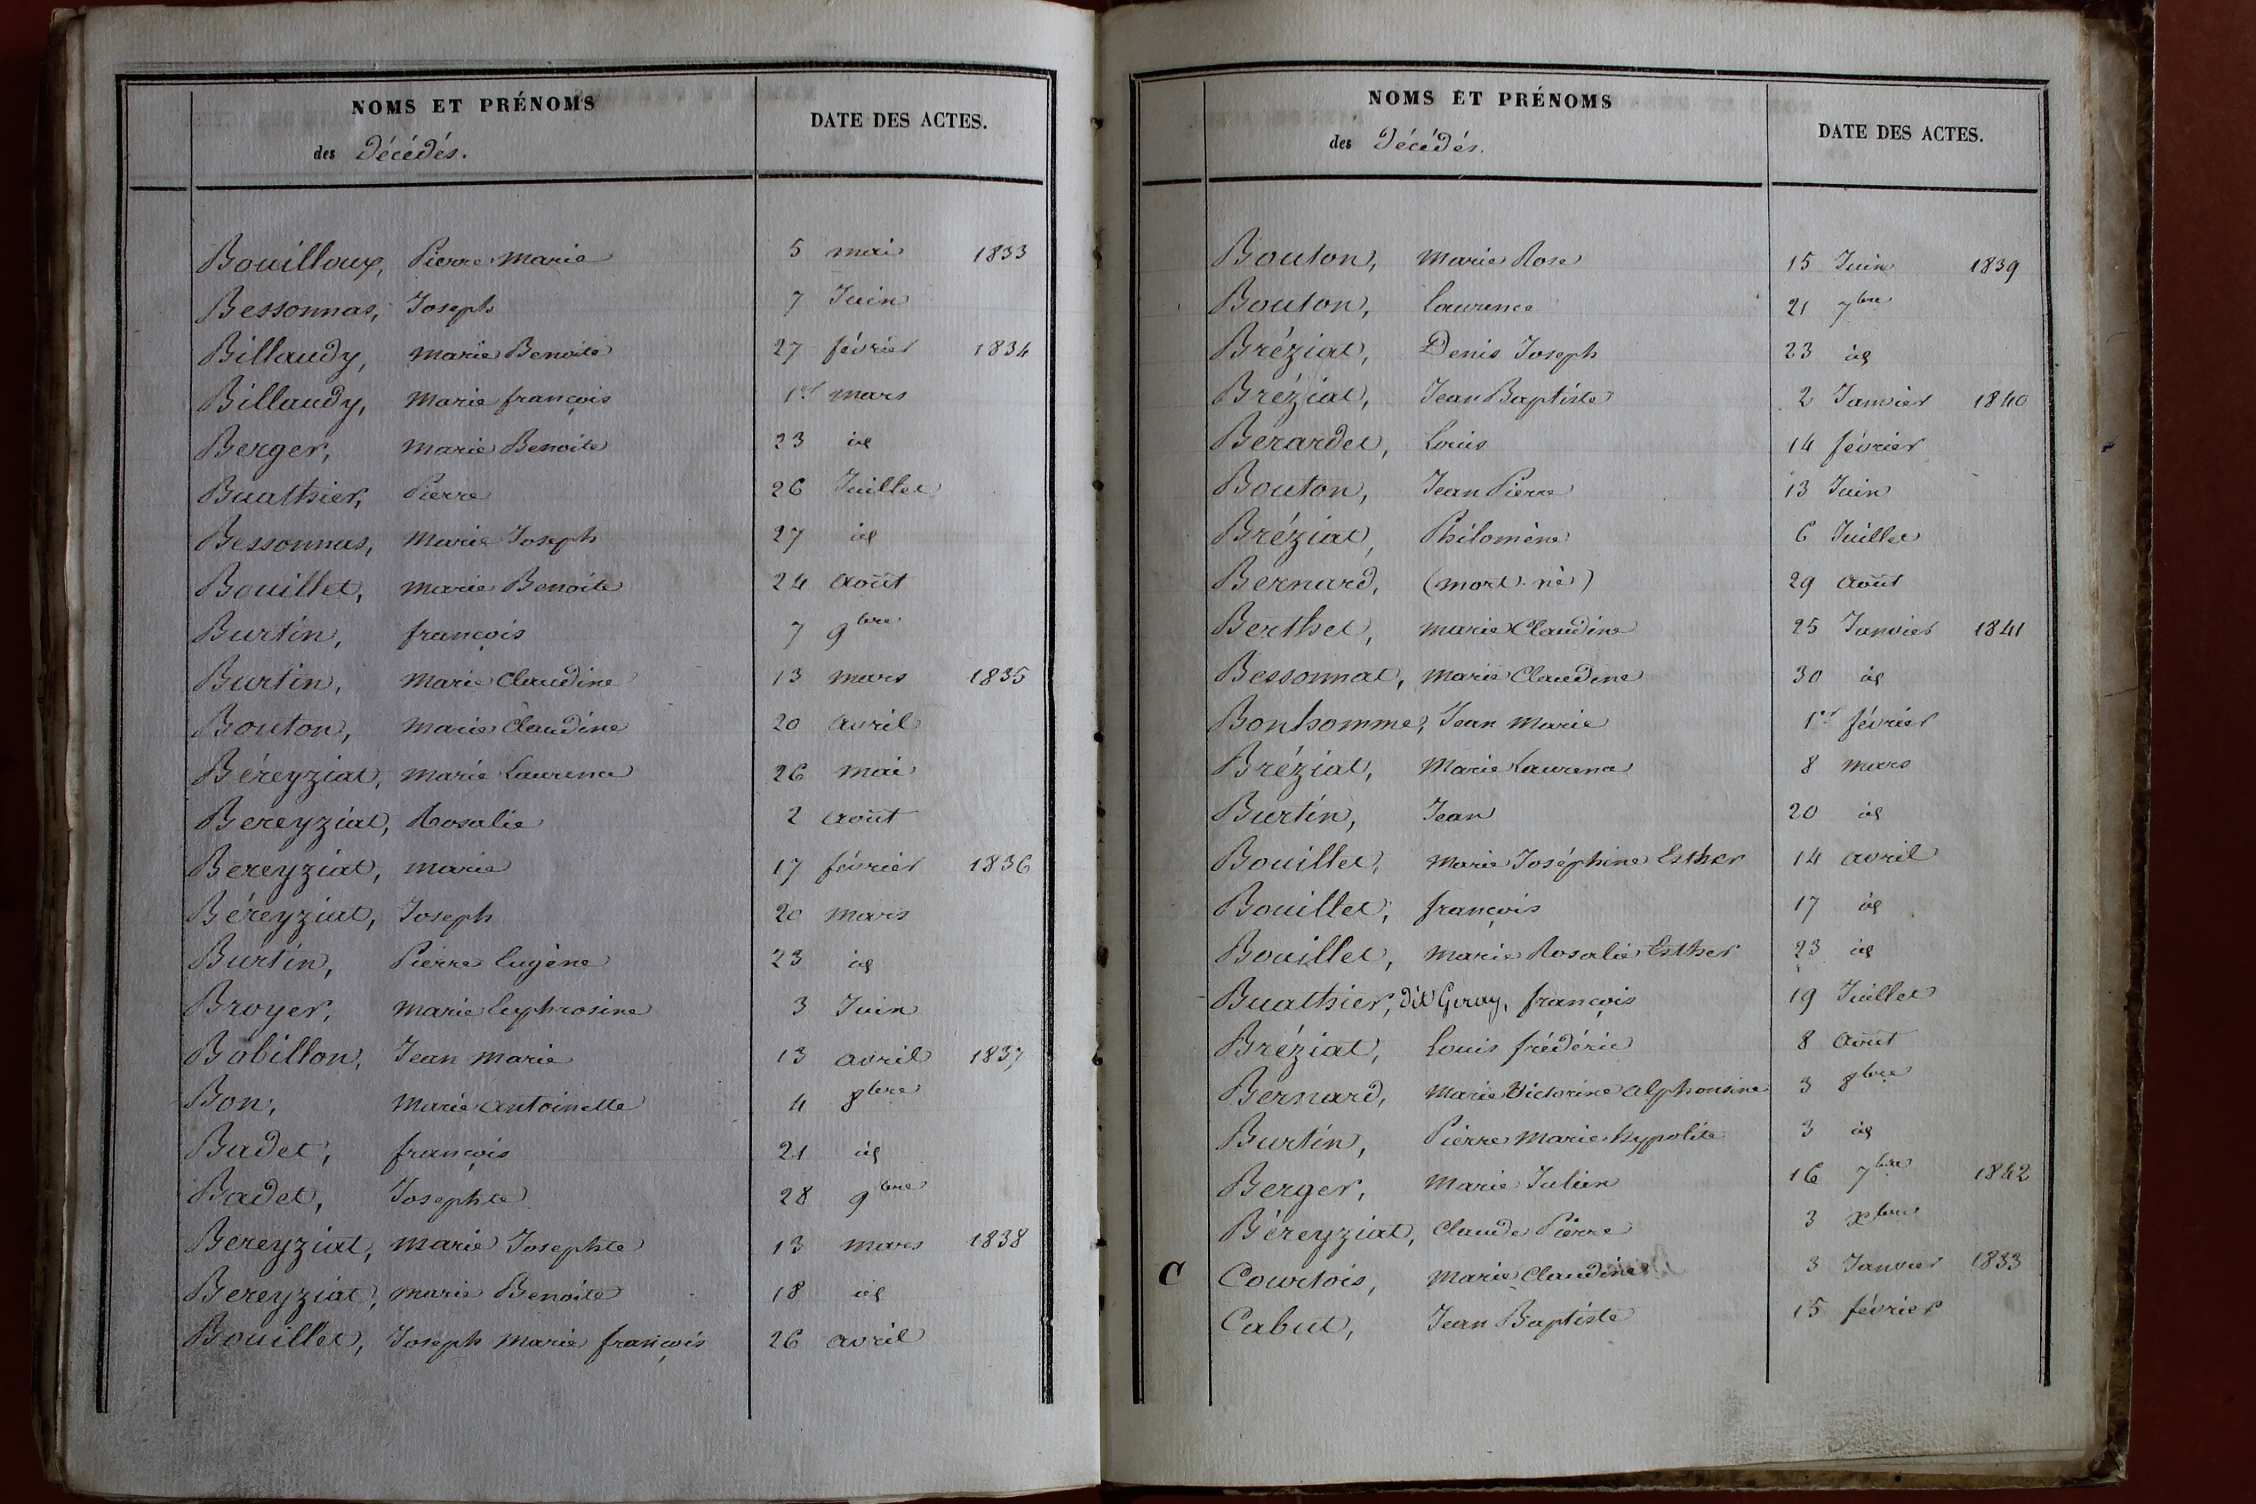 NOMS ET PRÉNOMS
des Décédés.
DATE DES ACTES.
Bouilloux, Pierre Marie 5 mai 1833
Bessonnas, Joseph 7 Juin
Billaudy, Marie Benoite 27 février 1834
Billaudy, Marie françois 1er mars
Berger, Marie Benoite 23 id
Buathier, Pierre 26 Juillet
Bessonnas, Marie Joseph 27 id
Bouillet, Marie Benoite 24 Août
Burtin, françois 7 9bre
Burtin, Marie Claudine 13 mars 1835
Bouton, Marie Claudine 20 avril
Béreyziat, Marie Laurence 26 mai
Bereyziat, Rosalie 2 Août
Bereyziat, Marie 17 février 1836
Béreyziat, Joseph 20 mars
Burtin, Pierre Eugène 23 id
Broyer, Marie Euphrosine 3 Juin
Bobillon, Jean Marie 13 avril 1837
Bon, Marie Antoinette 4 8bre
Badet, françois 21 id
Badet, Josephte 28 9bre
Bereyziat, Marie Josephte 13 mars 1838
Bereyziat, Marie Benoite 18 id
Bouillet, Joseph Marie françois 26 avril
NOMS ET PRÉNOMS
des Décédés.
DATE DES ACTES.
Bouton, Marie Rose 15 Juin 1839
Bouton, Laurence 21 7bre
Bréziat, Denis Joseph 23 id
Bréziat, Jean Baptiste 2 Janvier 1840
Berardet, Louis 14 février
Bouton, Jean Pierre 13 Juin
Bréziat, Philomène 6 Juillet
Bernard, (mort-né) 29 Août
Berthet, Marie Claudine 25 Janvier 1841
Bessonnat, Marie Claudine 30 id
Bonhomme, Jean Marie 1er février
Bréziat, Marie Laurence 8 mars
Burtin, Jean 20 id
Bouillet, Marie Joséphine Esther 14 avril
Bouillet, françois 17 id
Bouillet, Marie Rosalie Esther 23 id
Buathier, dit Geray, françois 19 Juillet
Bréziat, Louis frédéric 8 Août
Bernard, Marie Victorine Alphonsine 3 8bre
Burtin, Pierre Marie hypolite 3 id
Berger, Marie Julien 16 7bre 1842
Béreyziat, Claude Pierre 3 Xbre
C Courtois, Marie Claudine 3 Janvier 1833
Cabut, Jean Baptiste 15 février